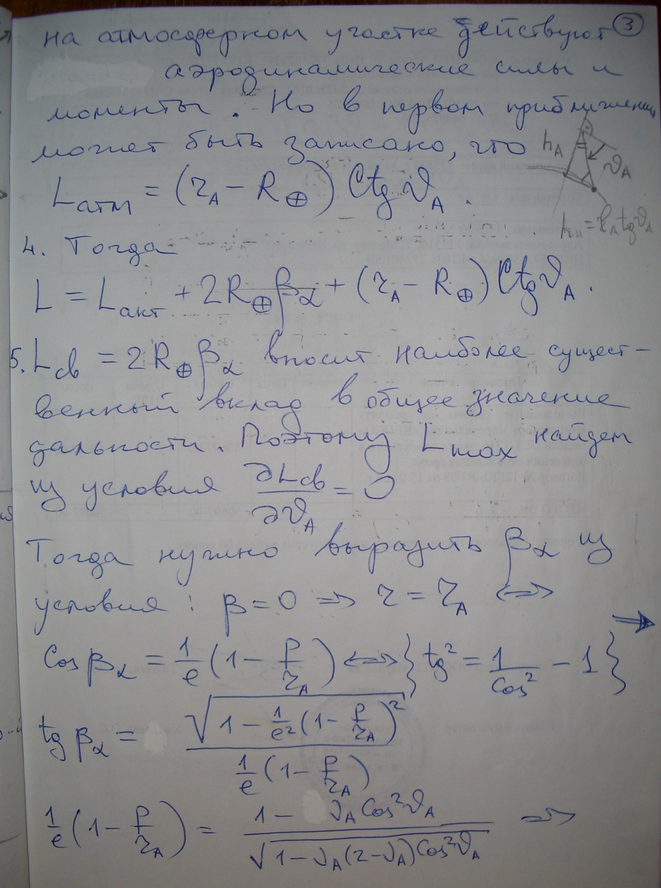 3
на атмосферном участке действуют
аэродинамические силы и
моменты. Но в первом приближении
может быть записано, что
h_A
ϑ_A
L_атм = (r_A − R_⊕) Ctg ϑ_A.
4. Тогда
L = L_акт + 2R_⊕ β_α + (r_A − R_⊕) Ctg ϑ_A.
5. L_св = 2R_⊕ β_α вносит наиболее сущест-
венный вклад в общее значение
дальности. Поэтому L_max найдем
из условия ∂L_св/∂ϑ_A = 0
Тогда нужно выразить β_α из
условия: β = 0 => r = r_A <=>
Cos β_α = 1/e (1 − p/r_A) <=> { tg² = 1/Cos² − 1 }
tg β_α = √(1 − 1/e² (1 − p/r_A)²) / (1/e (1 − p/r_A))
1/e (1 − p/r_A) = (1 − ν_A Cos² ϑ_A) / √(1 − ν_A (2 − ν_A) Cos² ϑ_A) =>